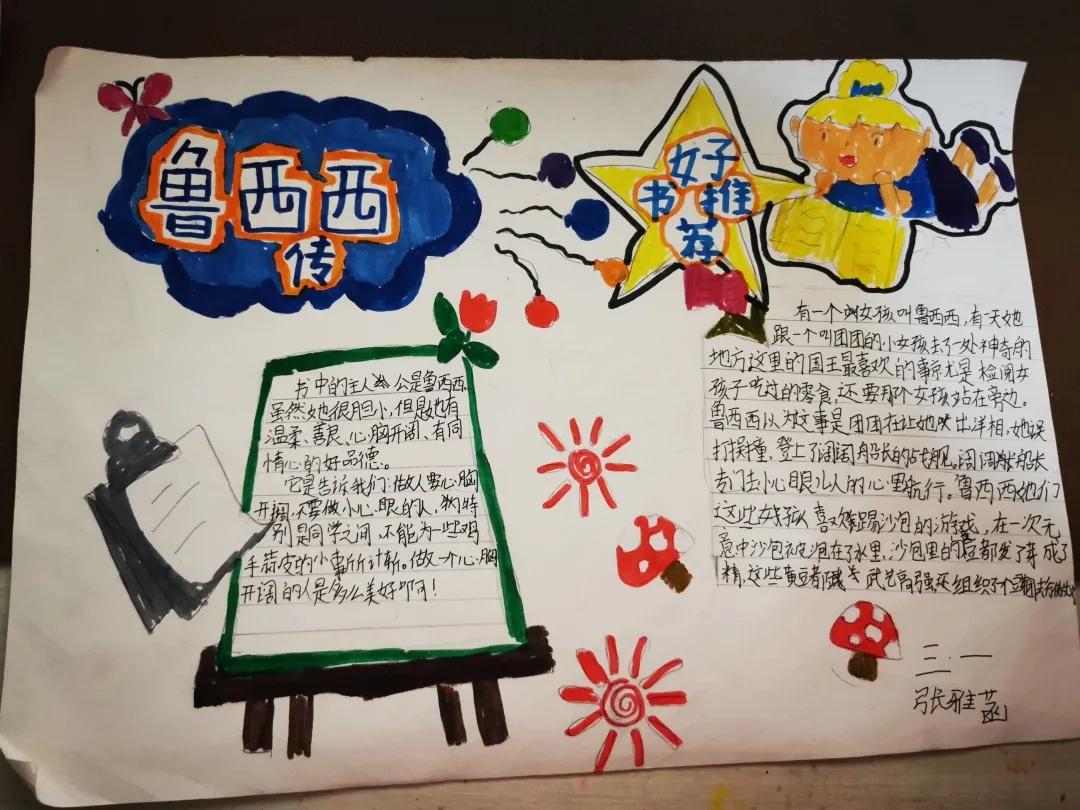 鲁西西
传
好子
书推
荐
书中的主人公是鲁西西
虽然她很胆小,但是她有
温柔、善良、心胸开阔、有同
情心的好品德。
它是告诉我们:做人要心胸
开阔,不要做小心眼的人,独特
别是同学之间,不能为一些鸡
毛蒜皮的小事斤斤计斩。做一个心胸
开阔的人是多么美好啊!
有一个女孩叫鲁西西,有一天她
跟一个叫团团的小女孩去了一处神奇的
地方这里的国王最喜欢的事就是检阅女
孩子吃过的零食,还要那个女孩站在旁边。
鲁西西以为这事是团团在让她出洋相,她误
打误撞,登上了阔阔船长的战舰。阔阔船长
专门去小心眼儿人的心里航行。鲁西西她们
这些女孩喜欢踢沙包的游戏,在一次无
意中沙包被泡在了水里,沙包里的豆都发了芽成了
精,这些黄豆都武艺高强还组织了个
三.一
张雅菡